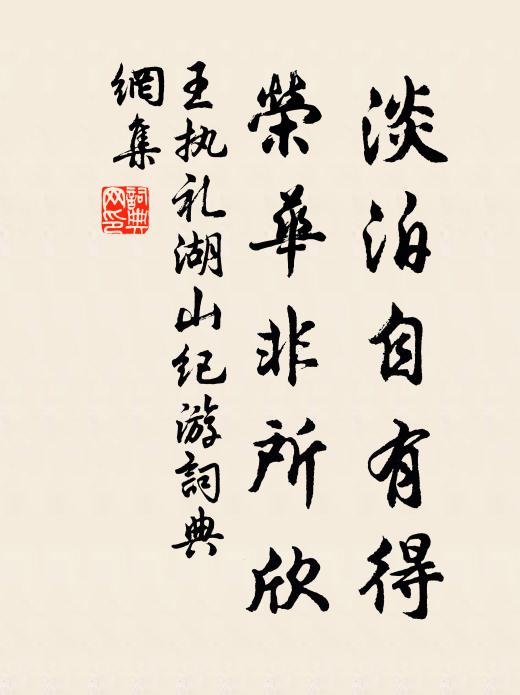 淡泊自有得
榮華非所欣
王执礼湖山纪游詞典
網集
詞典
网印